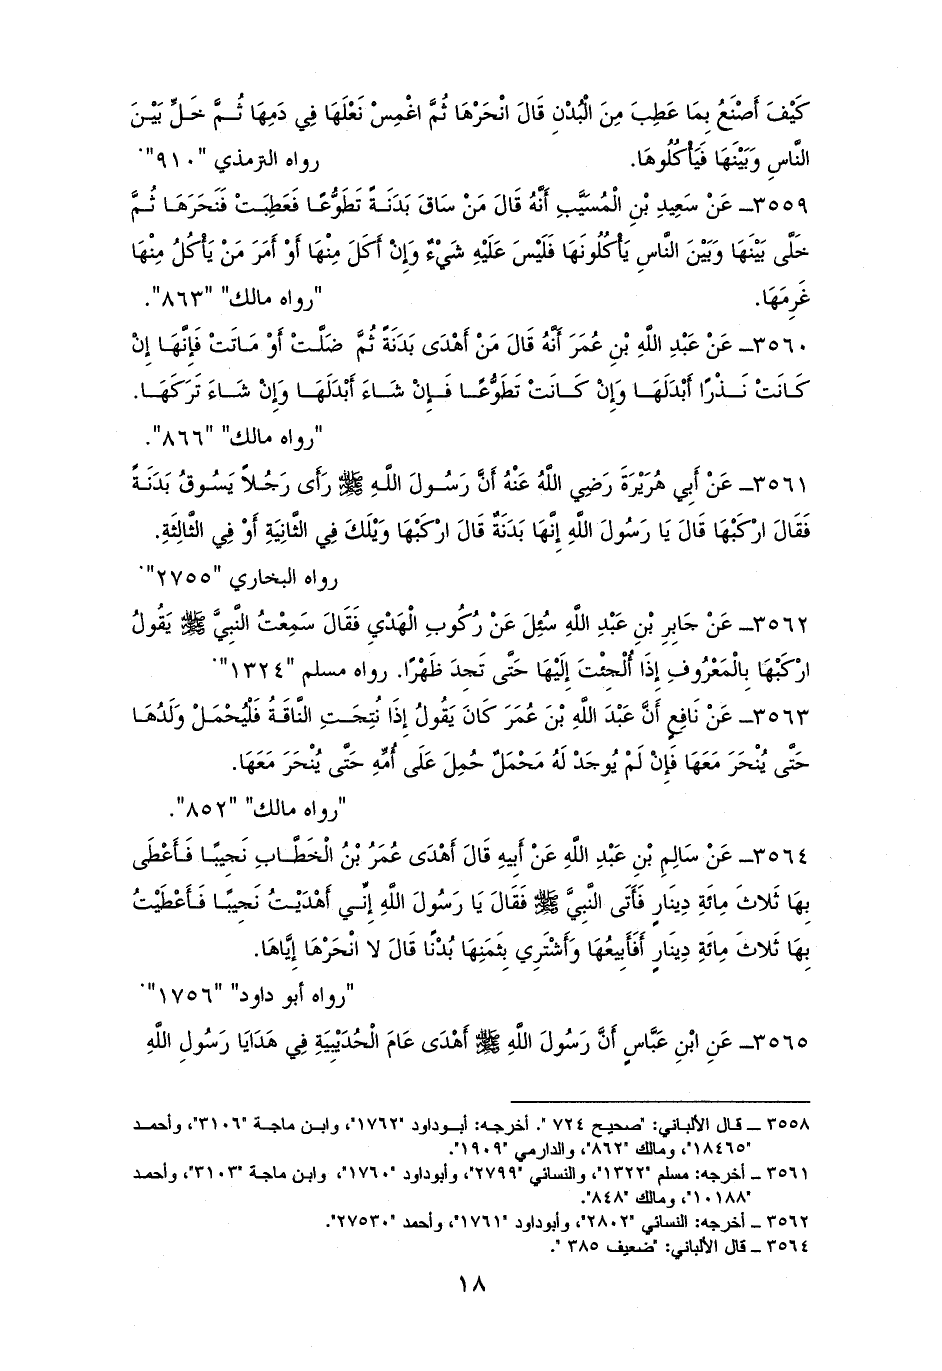 كَيْفَ أَصْنَعُ بِمَا عَطِبَ مِنَ الْبُدْنِ قَالَ انْحَرْهَا ثُمَّ اغْمِسْ نَعْلَهَا فِي دَمِهَا ثُمَّ خَلِّ بَيْنَ
النَّاسِ وَبَيْنَهَا فَيَأْكُلُوهَا. رواه الترمذي "٩١٠".
٣٥٥٩ـ عَنْ سَعِيدِ بْنِ الْمُسَيَّبِ أَنَّهُ قَالَ مَنْ سَاقَ بَدَنَةً تَطَوُّعًا فَعَطِبَتْ فَنَحَرَهَا ثُمَّ
خَلَّى بَيْنَهَا وَبَيْنَ النَّاسِ يَأْكُلُونَهَا فَلَيْسَ عَلَيْهِ شَيْءٌ وَإِنْ أَكَلَ مِنْهَا أَوْ أَمَرَ مَنْ يَأْكُلُ مِنْهَا
غَرِمَهَا. "رواه مالك" "٨٦٣".
٣٥٦٠ـ عَنْ عَبْدِ اللَّهِ بْنِ عُمَرَ أَنَّهُ قَالَ مَنْ أَهْدَى بَدَنَةً ثُمَّ ضَلَّتْ أَوْ مَاتَتْ فَإِنَّهَا إِنْ
كَانَتْ نَذْرًا أَبْدَلَهَا وَإِنْ كَانَتْ تَطَوُّعًا فَإِنْ شَاءَ أَبْدَلَهَا وَإِنْ شَاءَ تَرَكَهَا.
"رواه مالك" "٨٦٦".
٣٥٦١ـ عَنْ أَبِي هُرَيْرَةَ رَضِي اللَّهُ عَنْهُ أَنَّ رَسُولَ اللَّهِ ﷺ رَأَى رَجُلاً يَسُوقُ بَدَنَةً
فَقَالَ ارْكَبْهَا قَالَ يَا رَسُولَ اللَّهِ إِنَّهَا بَدَنَةٌ قَالَ ارْكَبْهَا وَيْلَكَ فِي الثَّانِيَةِ أَوْ فِي الثَّالِثَةِ.
رواه البخاري "٢٧٥٥".
٣٥٦٢ـ عَنْ جَابِرِ بْنِ عَبْدِ اللَّهِ سُئِلَ عَنْ رُكُوبِ الْهَدْيِ فَقَالَ سَمِعْتُ النَّبِيَّ ﷺ يَقُولُ
ارْكَبْهَا بِالْمَعْرُوفِ إِذَا أُلْجِئْتَ إِلَيْهَا حَتَّى تَجِدَ ظَهْرًا. رواه مسلم "١٣٢٤".
٣٥٦٣ـ عَنْ نَافِعٍ أَنَّ عَبْدَ اللَّهِ بْنَ عُمَرَ كَانَ يَقُولُ إِذَا نُتِجَتِ النَّاقَةُ فَلْيُحْمَلْ وَلَدُهَا
حَتَّى يُنْحَرَ مَعَهَا فَإِنْ لَمْ يُوجَدْ لَهُ مَحْمَلٌ حُمِلَ عَلَى أُمِّهِ حَتَّى يُنْحَرَ مَعَهَا.
"رواه مالك" "٨٥٢".
٣٥٦٤ـ عَنْ سَالِمِ بْنِ عَبْدِ اللَّهِ عَنْ أَبِيهِ قَالَ أَهْدَى عُمَرُ بْنُ الْخَطَّابِ نَجِيبًا فَأَعْطَى
بِهَا ثَلاثَ مِائَةِ دِينَارٍ فَأَتَى النَّبِيَّ ﷺ فَقَالَ يَا رَسُولَ اللَّهِ إِنِّي أَهْدَيْتُ نَجِيبًا فَأَعْطَيْتُ
بِهَا ثَلاثَ مِائَةِ دِينَارٍ أَفَأَبِيعُهَا وَأَشْتَرِي بِثَمَنِهَا بُدْنًا قَالَ لا انْحَرْهَا إِيَّاهَا.
"رواه أبو داود" "١٧٥٦".
٣٥٦٥ـ عَنِ ابْنِ عَبَّاسٍ أَنَّ رَسُولَ اللَّهِ ﷺ أَهْدَى عَامَ الْحُدَيْبِيَةِ فِي هَدَايَا رَسُولِ اللَّهِ
٣٥٥٨ ـ قال الألباني: "صحيح ٧٢٤ ". أخرجه: أبوداود "١٧٦٢"، وابن ماجة "٣١٠٦"، وأحمد
"١٨٤٦٥"، ومالك "٨٦٢"، والدارمي "١٩٠٩".
٣٥٦١ ـ أخرجه: مسلم "١٣٢٢"، والنسائي "٢٧٩٩"، وأبوداود "١٧٦٠"، وابن ماجة "٣١٠٣"، وأحمد
"١٠١٨٨"، ومالك "٨٤٨".
٣٥٦٢ ـ أخرجه: النسائي "٢٨٠٢"، وأبوداود "١٧٦١"، وأحمد "٢٧٥٣٠".
٣٥٦٤ ـ قال الألباني: "ضعيف ٣٨٥ ".
١٨